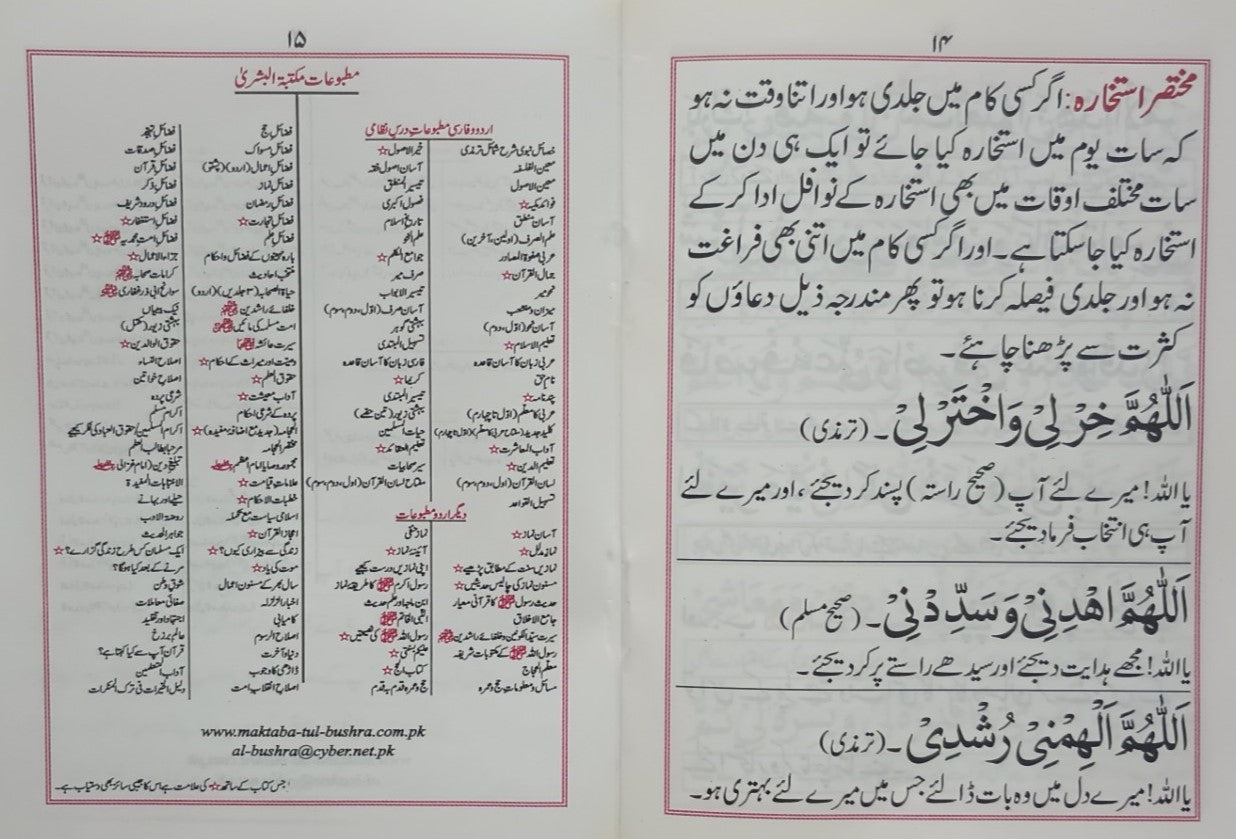 ۱۴
مختصر استخارہ: اگر کسی کام میں جلدی ہو اور اتنا وقت نہ ہو
کہ سات یوم میں استخارہ کیا جائے تو ایک ہی دن میں
سات مختلف اوقات میں بھی استخارہ کے نوافل ادا کر کے
استخارہ کیا جا سکتا ہے۔ اور اگر کسی کام میں اتنی بھی فراغت
نہ ہو اور جلدی فیصلہ کرنا ہو تو پھر مندرجہ ذیل دعاؤں کو
کثرت سے پڑھنا چاہئے۔
اَللّٰهُمَّ خِرْ لِیْ وَاخْتَرْ لِیْ۔ (ترمذی)
یا اللہ! میرے لئے آپ (صحیح راستہ) پسند کر دیجئے، اور میرے لئے
آپ ہی انتخاب فرما دیجئے۔
اَللّٰهُمَّ اهْدِنِیْ وَسَدِّدْنِیْ۔ (صحیح مسلم)
یا اللہ! مجھے ہدایت دیجئے اور سیدھے راستے پر کر دیجئے۔
اَللّٰهُمَّ اَلْهِمْنِیْ رُشْدِیْ۔ (ترمذی)
یا اللہ! میرے دل میں وہ بات ڈالئے جس میں میرے لئے بہتری ہو۔
۱۵
مطبوعات مکتبۃ البشریٰ
اردو و فارسی مطبوعات درسِ نظامی
خصائل نبوی شرح شمائل ترمذی
معین الفلسفہ
معین الاصول
فوائد مکیہ☆
آسان منطق
علم الصرف (اولین، آخرین)
عربی صفوۃ المصادر
جمال القرآن☆
نحومیر
میزان و منشعب
آسان نحو (اوّل، دوم)
تعلیم الاسلام☆
عربی زبان کا آسان قاعدہ
نام حق
پند نامہ☆
عربی کا معلّم (اوّل تا چہارم)
کلید جدید (مفتاح عربی کا معلّم) (اوّل تا چہارم)
آداب المعاشرت☆
تعلیم الدین☆
لسان القرآن (اول، دوم، سوم)
تسہیل القواعد
خیر الاصول☆
آسان اصول فقہ
تیسیر المنطق
فصول اکبری
تاریخ اسلام
علم النحو
جوامع الکلم☆
صرف میر
تیسیر الابواب
آسان صرف (اوّل، دوم، سوم)
بہشتی گوہر
تسہیل المبتدی
فارسی زبان کا آسان قاعدہ
کریما☆
تیسیر المبتدی
بہشتی زیور (تین حصّے)
حیات المسلمین
تعلیم العقائد☆
سیر صحابیات
مفتاح لسان القرآن (اول، دوم، سوم)
دیگر اردو مطبوعات
آسان نماز☆
نماز مدلل☆
نمازیں سنت کے مطابق پڑھیے☆
مسنون نماز کی چالیس حدیثیں☆
حدیث رسول ﷺ کا قرآنی معیار
جامع الاخلاق
سیرت سید الکونین و خلفائے راشدین
رسول اللہ ﷺ کے مکتوبات شریفہ
معلم الحجاج
مسائل و معلومات حج و عمرہ
نماز حنفی
آئینۂ نماز☆
اپنی نمازیں درست کیجیے
رسول اکرم ﷺ کا طریقۂ نماز
ابن ماجہ اور علم حدیث
النبی الخاتم ﷺ
رسول اللہ ﷺ کی نصیحتیں☆
علیکم بسنتی☆
کتاب الحج☆
حج و عمرہ قدم بہ قدم
فضائل حج
فضائل مسواک
فضائل اعمال (اردو) (پشتو)
فضائل نماز
فضائل رمضان
فضائل تجارت☆
فضائل علم
بارہ مہینوں کے فضائل و احکام
منتخب احادیث
حیاۃ الصحابہ (۳ جلدیں) (اردو)
خلفائے راشدین
امت مسلمہ کی مائیں
سیرت عائشہ
وصیت اور میراث کے احکام☆
حقوق العلم☆
آداب معیشت☆
پردہ کے شرعی احکام
الحجامہ (جدید مع اضافہ مفیدہ)☆
مختصر الحجامہ
مجموعہ وصایا امام اعظم
علامات قیامت☆
خطبات الاحکام☆
اسلامی سیاست مع تکملہ
اعجاز القرآن☆
زندگی سے بیزاری کیوں؟☆
موت کی یاد☆
سال بھر کے مسنون اعمال
اخبار الزلزلہ
کامیابی
اصلاح الرسوم
دنیا و آخرت
ڈاڑھی کا وجوب
اصلاح انقلاب امت
فضائل تہجد
فضائل صدقات
فضائل قرآن
فضائل ذکر
فضائل درود شریف
فضائل استغفار☆
فضائل امت محمدیہ ﷺ☆
جزاء الاعمال☆
کرامات صحابہ
سوانح ابی ذر غفاری
نیک بیبیاں
بہشتی زیور (مکمل)
حقوق الوالدین☆
اصلاح النساء
اصلاح خواتین
شرعی پردہ
اکرام مسلم
اکرام المسلمین / حقوق العباد کی فکر کیجیے
مرحبا طالب العلم
تبلیغ دین (امام غزالی)
الانتباہات المفیدۃ
حیلے اور بہانے
روضۃ الادب
جواہر الحدیث
ایک مسلمان کس طرح زندگی گزارے؟☆
مرنے کے بعد کیا ہوگا؟
شوق وطن
صفائی معاملات
اجتہاد اور تقلید
عالم برزخ
قرآن آپ سے کیا کہتا ہے؟
آداب المتعلمین
دلیل الخیرات فی ترک المنکرات
www.maktaba-tul-bushra.com.pk
al-bushra@cyber.net.pk
! جس کتاب کے ساتھ ☆ کی علامت ہے اس کا جیبی سائز بھی دستیاب ہے۔